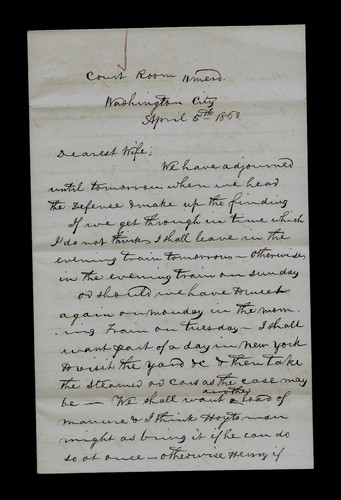 Court Room
Washington City
April 5th 186
Dearest Wife;
We have adjourned
until tomorrow when we hear
the Defense & make up the finding
If we get through in time which
I do not think I shall leave in the
evening train tomorrow - otherwise
in the evening train on Sunday
or should we have to meet
again on Monday in the morn
ing train on Tuesday - I shall
want part of a day in New York
to visit the yard &c & then take
the Steamer or Cars as the case may
be - We shall want another load of
manure & I think Hoyts man
might as bring it if he can do
so at once - otherwise Henry if